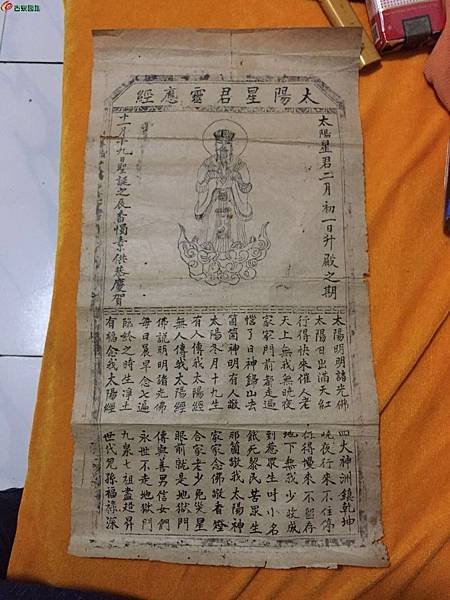 古泉园地
太陽星君靈應經
太陽星君二月初一日升殿之期
十一月十九日聖誕之辰香燭素供恭慶賀
太陽明明諸光佛 四大神洲鎮乾坤
太陽日出滿天紅 曉夜行來不住停
行得快來催人老 行得慢來不留存
天上無我無曉夜 地下無我少收成
家家門前都走過 到惹眾生叫小名
惱了日神歸山去 餓死黎民苦眾生
箇箇神明有人敬 那箇敬我太陽神
太陽冬月十九生 家家念佛敬香燈
有人傳我太陽經 合家老少免災星
無人傳我太陽經 眼前就是地獄門
佛說明明諸光佛 傳與善男信女們
每日晨早念七遍 永世不走地獄門
臨終之時生淨土 九泉七祖盡超昇
有福念我太陽經 世代兒孫福祿深